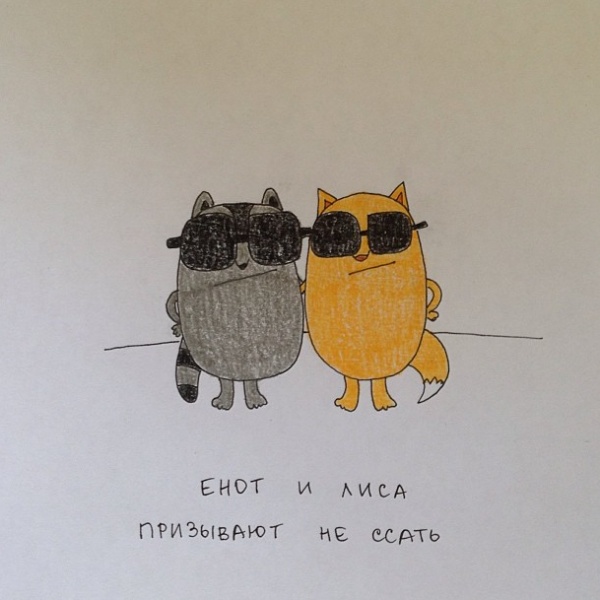 ЕНОТ И ЛИСА
ПРИЗЫВАЮТ НЕ ССАТЬ